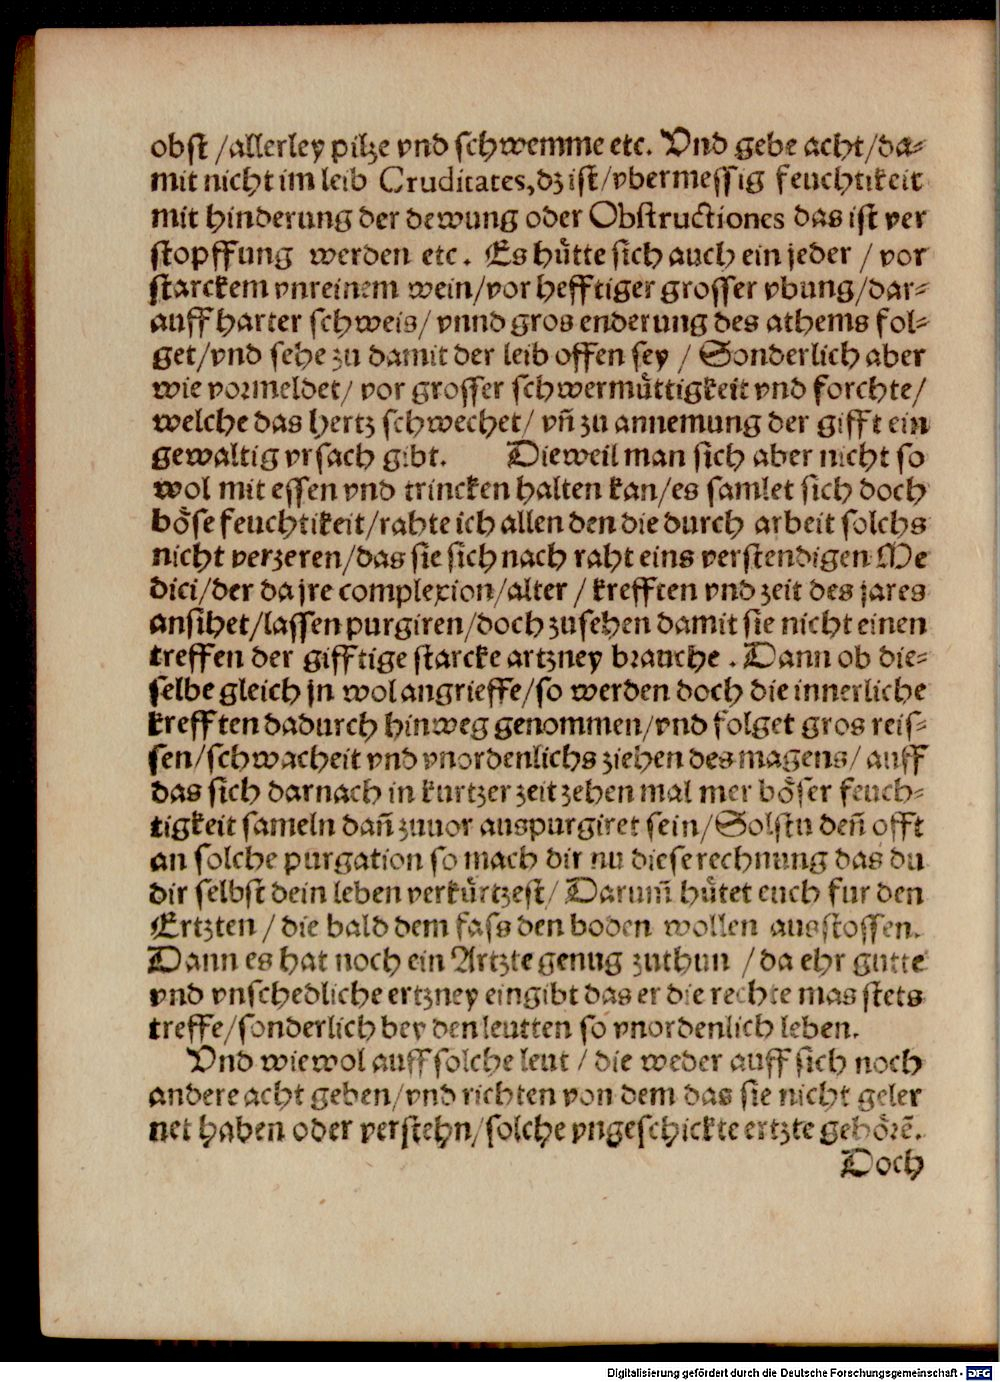 obst /allerley pilze vnd schwemme etc. Vnd gebe acht/da⸗
mit nicht im leib Cruditates,dz ist/vbermessig feuchtikeit
mit hinderung der dewung oder Obstructiones das ist ver
stopffung werden etc. Es huͤtte sich auch ein jeder / vor
starckem vnreinem wein/vor hefftiger grosser vbung/dar⸗
auff harter schweis/ vnnd gros enderung des athems fol⸗
get/vnd sehe zu damit der leib offen sey / Sonderlich aber
wie vormeldet/ vor grosser schwermuͤttigkeit vnd forchte/
welche das hertz schwechet/ vñ zu annemung der gifft ein
gewaltig vrsach gibt. Dieweil man sich aber nicht so
wol mit essen vnd trincken halten kan/es samlet sich doch
boͤse feuchtikeit/rahte ich allen den die durch arbeit solchs
nicht verzeren/das sie sich nach raht eins verstendigen Me
dici/der da jre complexion/alter / krefften vnd zeit des jares
ansihet/lassen purgiren/doch zusehen damit sie nicht einen
treffen der gifftige starcke artzney brauche . Dann ob die⸗
selbe gleich jn wol angrieffe/so werden doch die innerliche
krefften dadurch hinweg genommen/vnd folget gros reis⸗
sen/schwacheit vnd vnordenlichs ziehen des magens/ auff
das sich darnach in kurtzer zeit zehen mal mer boͤser feuch⸗
tigkeit sameln dañ zuuor auspurgiret sein/Solstu deñ offt
an solche purgation so mach dir nu diese rechnung das du
dir selbst dein leben verkuͤrtzest/ Darum̃ huͤtet euch fur den
Ertzten / die bald dem fass den boden wollen ausstossen.
Dann es hat noch ein Artzte genug zuthun / da ehr gutte
vnd vnschedliche ertzney eingibt das er die rechte mas stets
treffe/sonderlich bey den leutten so vnordenlich leben.
Vnd wiewol auff solche leut / die weder auff sich noch
andere acht geben/vnd richten von dem das sie nicht geler
net haben oder verstehn/solche vngeschickte ertzte gehoͤrẽ.
Doch
Digitalisierung gefördert durch die Deutsche Forschungsgemeinschaft - DFG